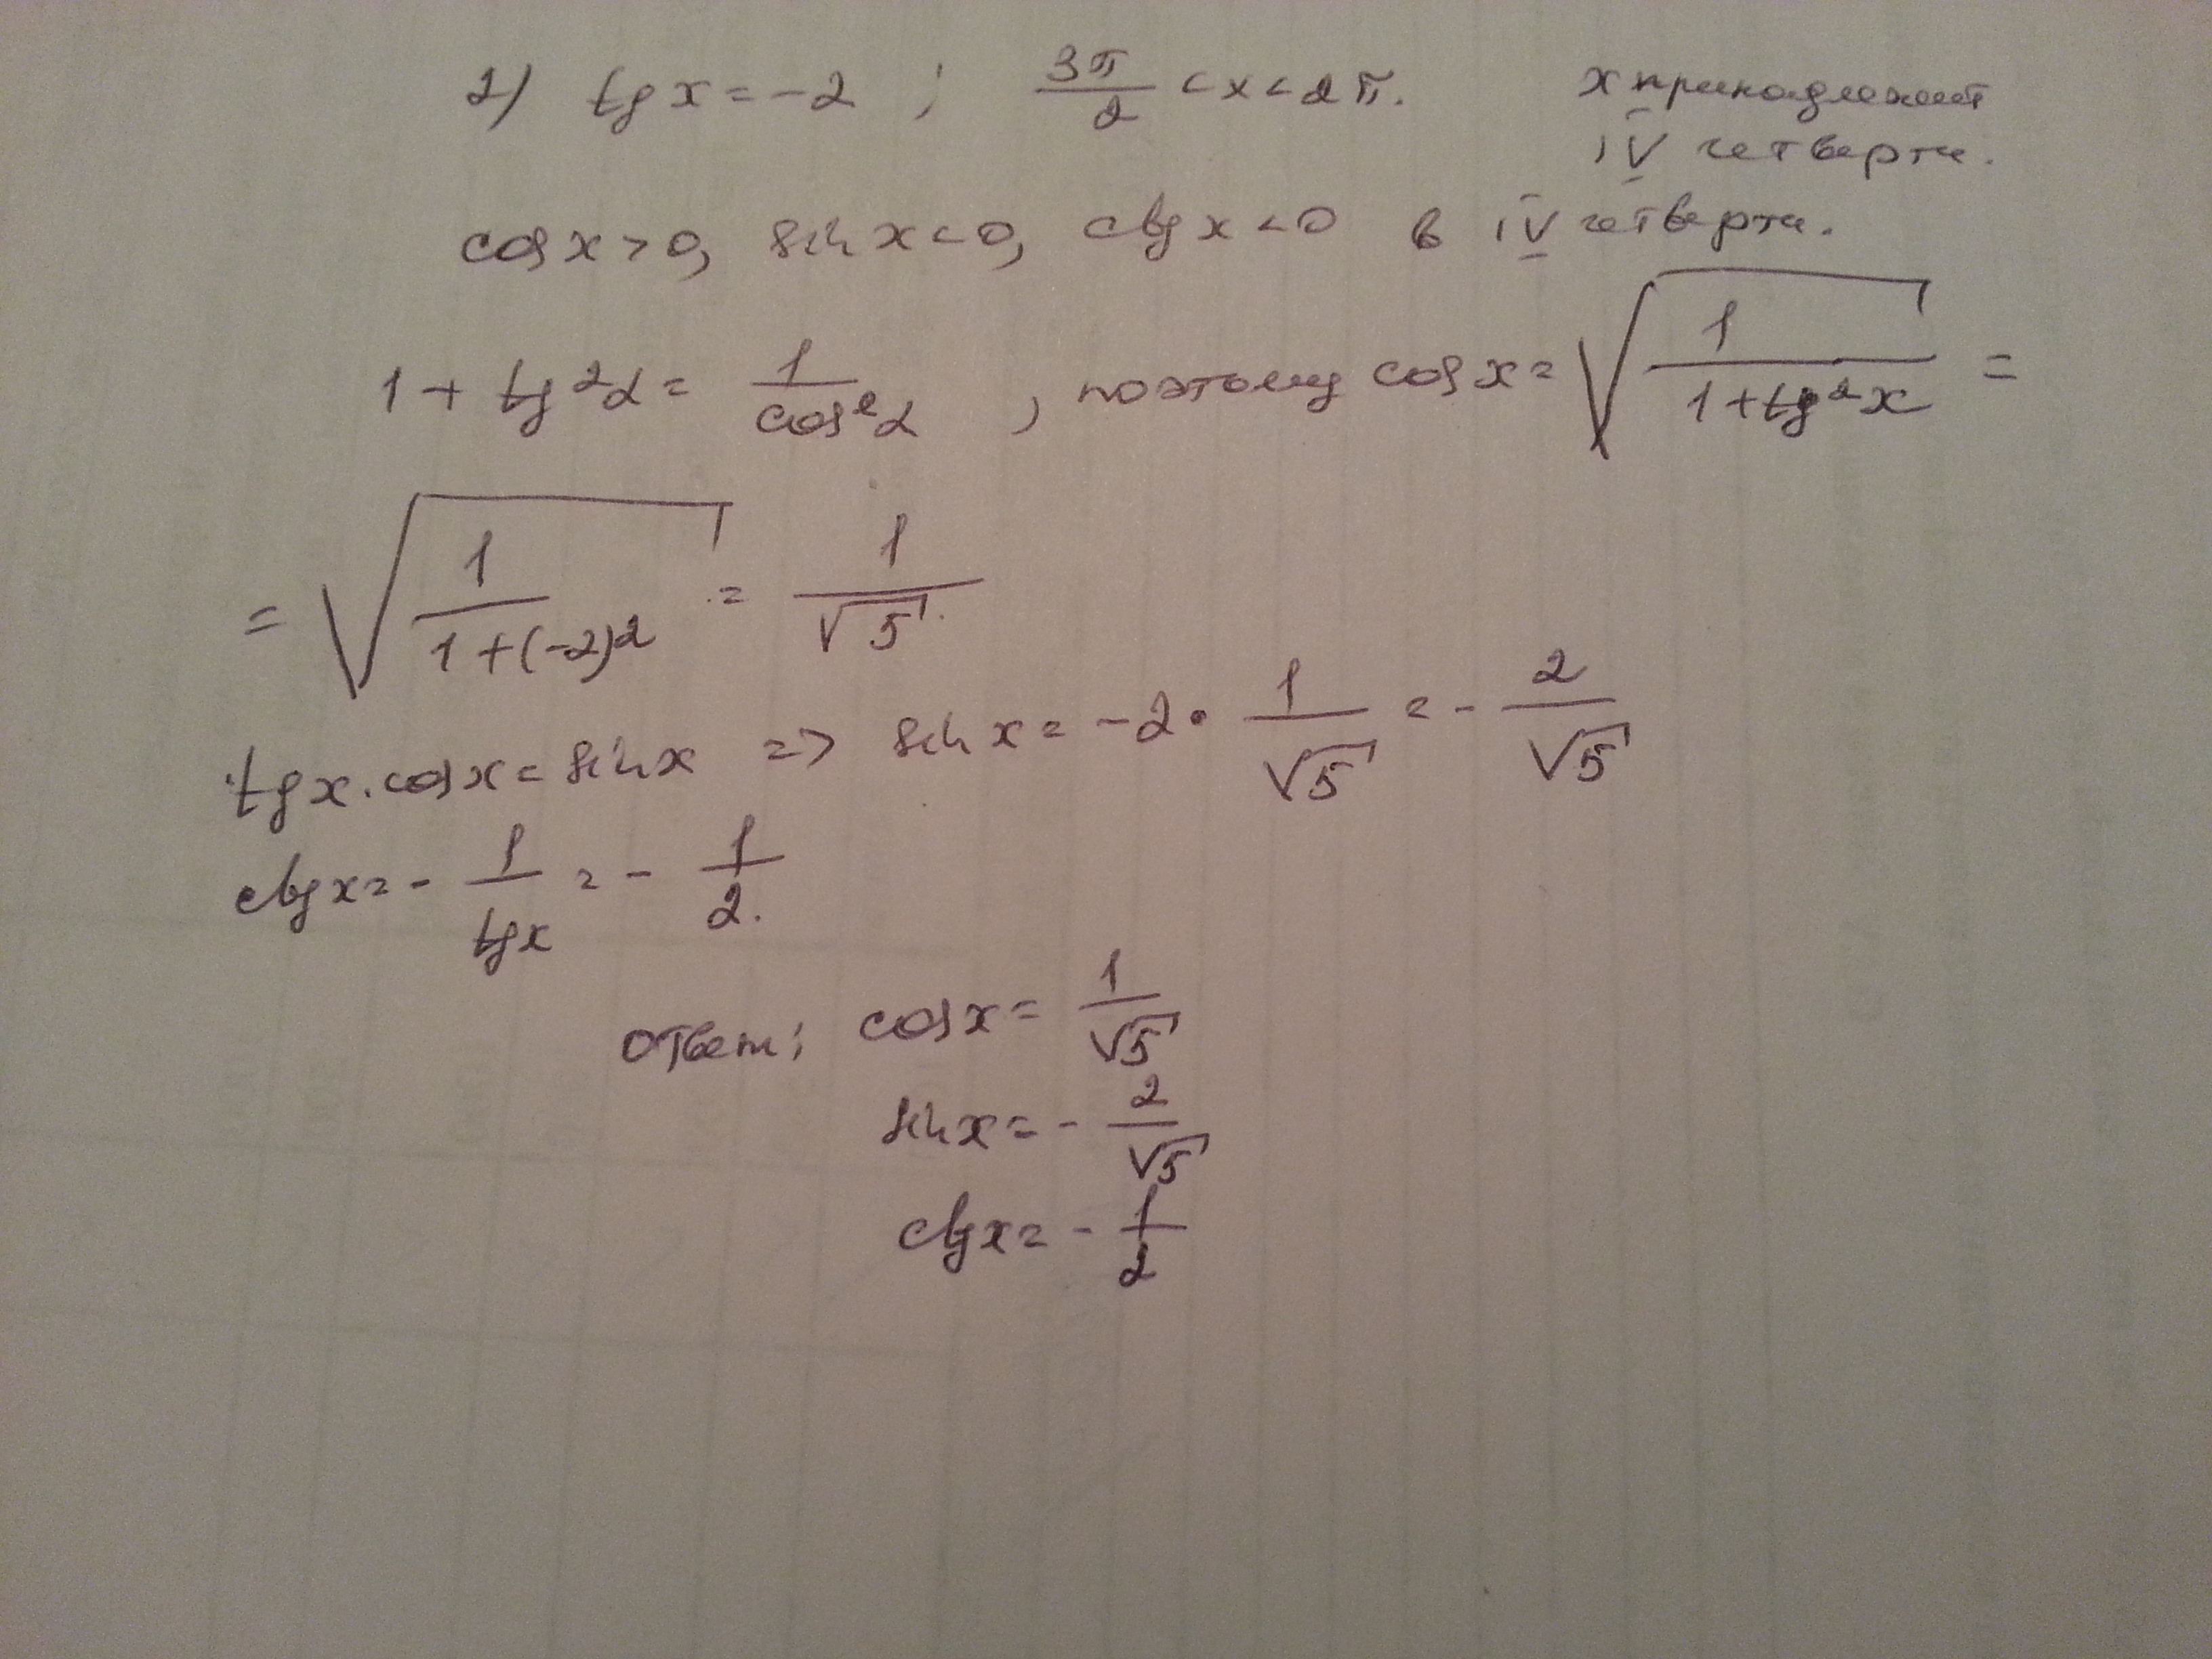 2) tg x = -2 ; 3π/2 < x < 2π. x принадлежит
IV четверти.
cos x > 0, sin x < 0, ctg x < 0 в IV четверти.
1 + tg²α = 1/cos²α , поэтому cos x = √(1/(1+tg²x)) =
= √(1/(1+(-2)²)) = 1/√5.
tg x · cos x = sin x => sin x = -2 · 1/√5 = - 2/√5
ctg x = - 1/tg x = - 1/2.
Ответ: cos x = 1/√5
sin x = - 2/√5
ctg x = - 1/2